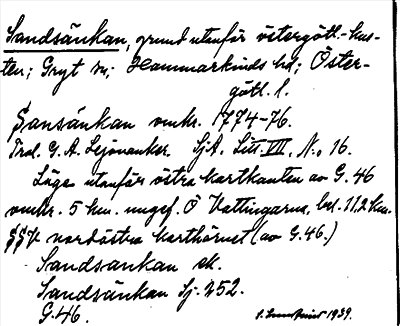 Sandsänkan, grund utanför östergötl.-kus-
ten; Gryt sn; Hammarkinds hd; Öster-
götl. l.
Sansänkan omkr. 1774-76.
Trol. G. A. Lejonanker SjA. Litt. VII. No 16.
Läge utanför östra kartkanten av G. 46
omkr. 5 km. ungef. Ö Vattingarna, bel. 11,2 km.
SSV nordöstra karthörnet (av G.46.)
Sandsankan ek.
Sandsänkan Sj. 252.
G.46. 1939.